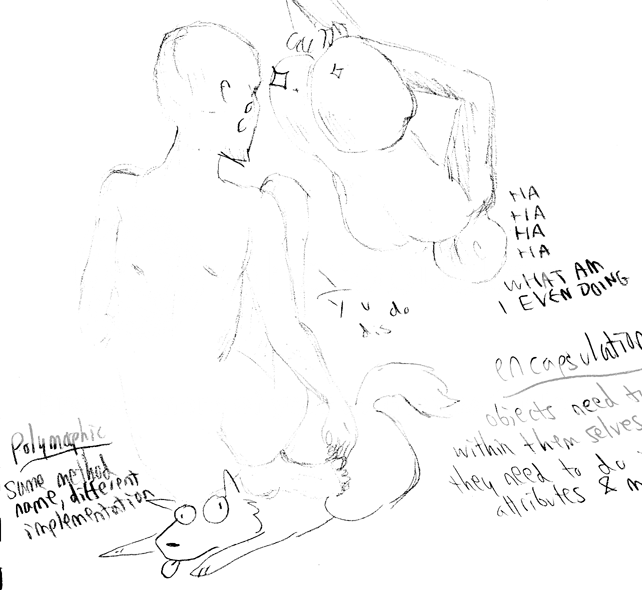 HA
HA
HA
HA
WHAT AM
I EVEN DOING
Y u do
dis
encapsulation
objects need to
within them selves
they need to do
attributes & m
Polymorphic
same method
name, different
implementation